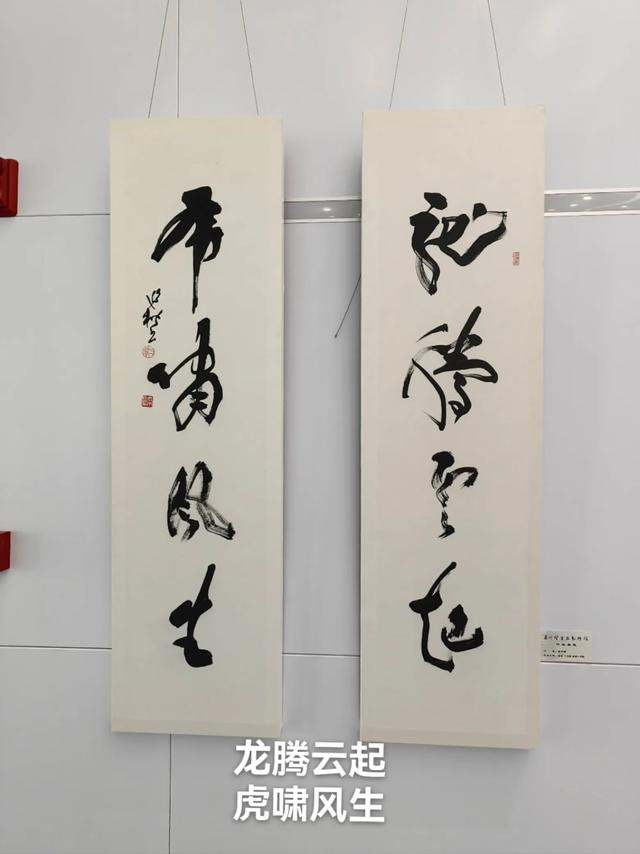 龍騰雲起
虎嘯風生
龙腾云起
虎啸风生